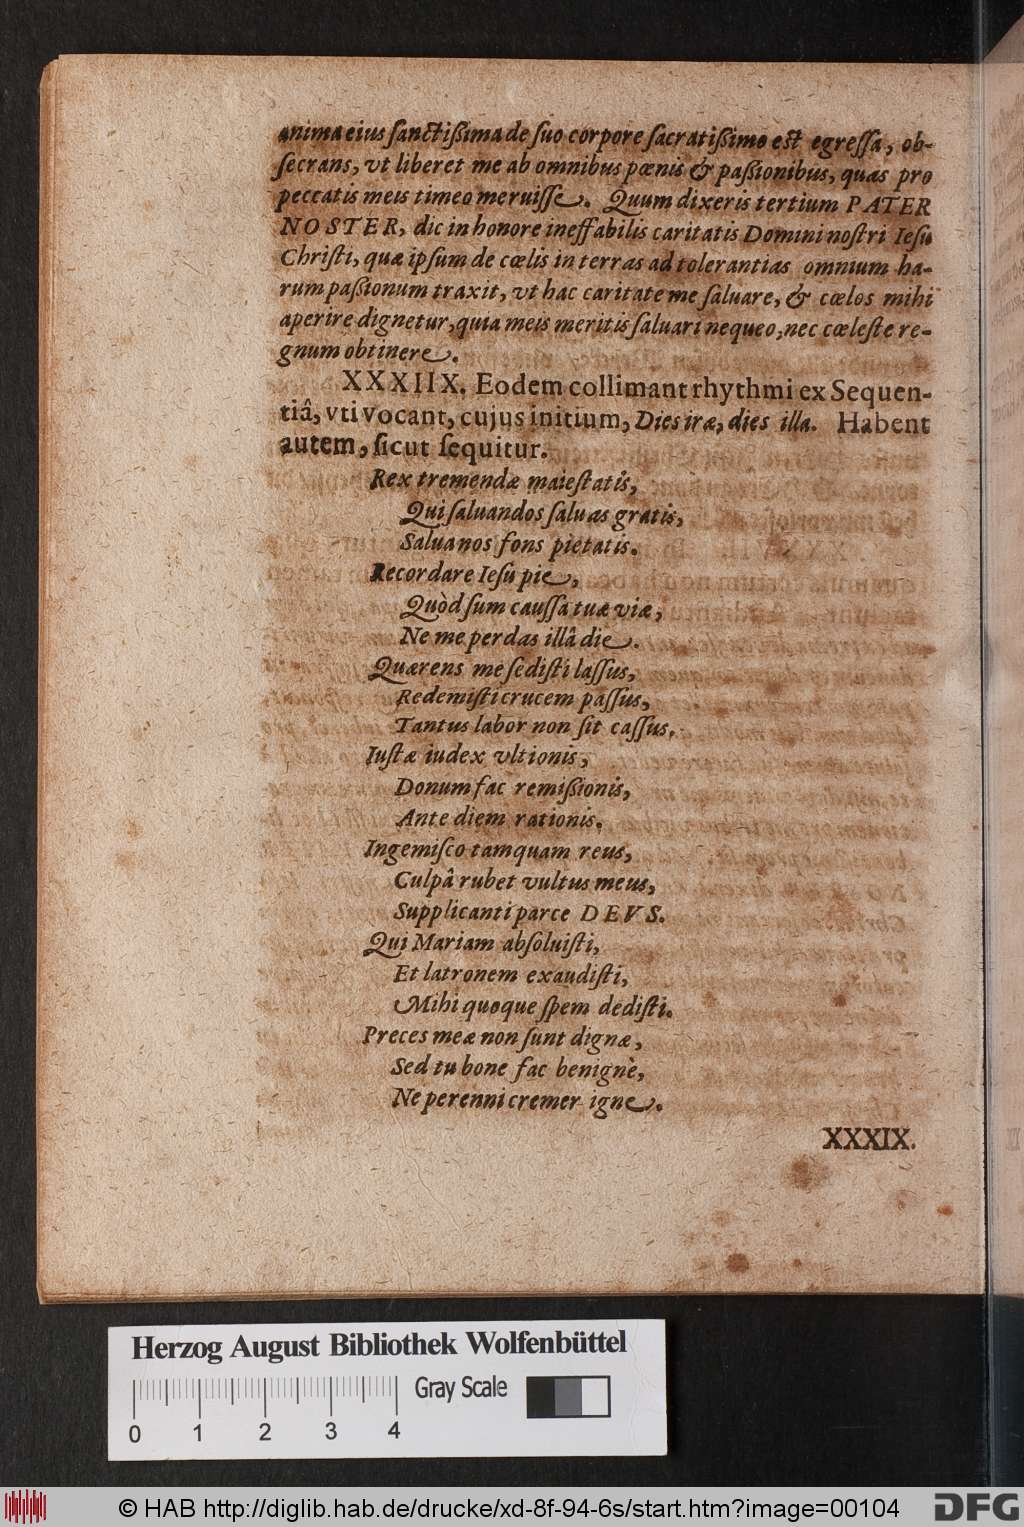 anima eius ſanctißima de ſuo corpore ſacratißimo est egreſſa, ob-
ſecrans, vt liberet me ab omnibus pœnis & paßionibus, quas pro
peccatis meis timeo meruiſſe. Quum dixeris tertium PATER
NOSTER, dic in honore ineffabilis caritatis Domini noſtri Ieſu
Chriſti, quæ ipſum de cœlis in terras ad tolerantias omnium ha-
rum paßionum traxit, vt hac caritate me ſaluare, & cœlos mihi
aperire dignetur, quia meis meritis ſaluari nequeo, nec cœleſte re-
gnum obtinere.
XXXIIX. Eodem collimant rhythmi ex Sequen-
tiâ, vti vocant, cujus initium, Dies iræ, dies illa. Habent
autem, ſicut ſequitur.
Rex tremendæ maieſtatis,
Qui ſaluandos ſaluas gratis,
Salua nos fons pietatis.
Recordare Ieſu pie,
Quòd ſum cauſſa tuæ viæ,
Ne me perdas illâ die.
Quærens me ſediſti laſſus,
Redemiſti crucem paſſus,
Tantus labor non ſit caſſus.
Iuſtæ iudex vltionis,
Donum fac remißionis,
Ante diem rationis.
Ingemiſco tamquam reus,
Culpâ rubet vultus meus,
Supplicanti parce DEVS.
Qui Mariam abſoluiſti,
Et latronem exaudiſti,
Mihi quoque ſpem dediſti.
Preces meæ non ſunt dignæ,
Sed tu bone fac benignè,
Ne perenni cremer igne.
XXXIX.
Herzog August Bibliothek Wolfenbüttel
Gray Scale
0 1 2 3 4
© HAB http://diglib.hab.de/drucke/xd-8f-94-6s/start.htm?image=00104
DFG